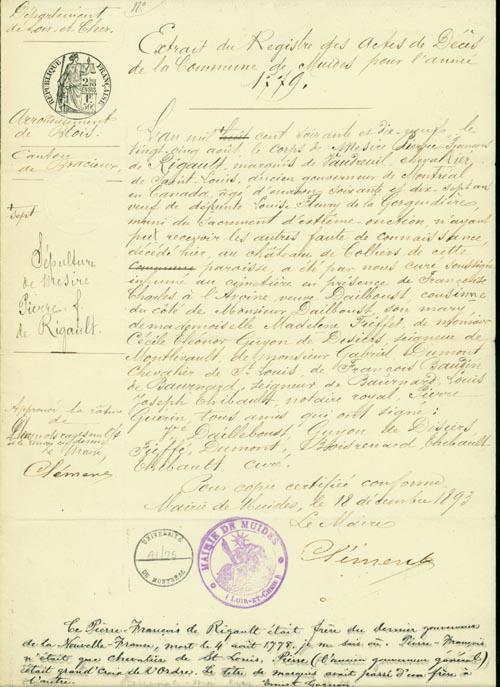 Département
de Loir-et-Cher.
No
RÉPUBLIQUE FRANÇAISE
Arrondissement
de Blois.
Canton
de Bracieux.
Sépulture
de Messire
Pierre f.
de Rigault.
Approuvé la rature
de
mots rayés nuls
le Maire
Clément
Extrait du Registre des Actes de Décès
de la Commune de Muides pour l'année
1779.
L'an mil huit cent soixante et dix-neuf, le
vingt-cinq août, le corps de Messire Pierre François
de Rigault, marquis de Vaudreuil, chevalier
de Saint Louis, ancien gouverneur de Montréal
en Canada, âgé d'environ soixante et dix-sept ans
veuf de défunte Louise Fleury de la Gorgendière,
muni du sacrement d'extrême-onction, n'ayant
put recevoir les autres faute de connaissance,
décédé hier, au château de Colliers de cette
Commune paroisse, a été par nous curé soussigné
inhumé au cimetière en présence de Françoise
Charles à l'Avoine veuve Dailboust, cousine
du coté de Monsieur Dailboust, son mary,
demademoiselle Madelene Fieffet, de monsieur
Cécile Eléonor Guyon de Disiers, seigneur de
Montlivault, de monsieur Gabriel Dumont
Chevalier de St Louis, de François Baudin
de Baurnard, seigneur de Baurnard, Louis
Joseph Thibault, notaire royal, Pierre
Guérin tous amis qui ont signé:
Dailleboust, Guyon de Disiers,
Fieffé, Dumont, Boisrenard, Thibault
Thibault, curé.
Pour copie certifiée conforme
Mairie de Muides, le 18 décembre 1893
Le Maire
Clément
UNIVERSITÉ
DE MONTRÉAL
MAIRIE DE MUIDES
(LOIR-ET-CHER)
Ce Pierre-François de Rigault était frère du dernier gouverneur
de la Nouvelle-France, mort le 4 août 1778, je ne sais où. Pierre-François
n'était que chevalier de St Louis, Pierre (l'ancien gouverneur général)
était grand'Croix de l'Ordre. Le titre de marquis avait passé d'un frère à
l'autre.
Ernest Gagnon